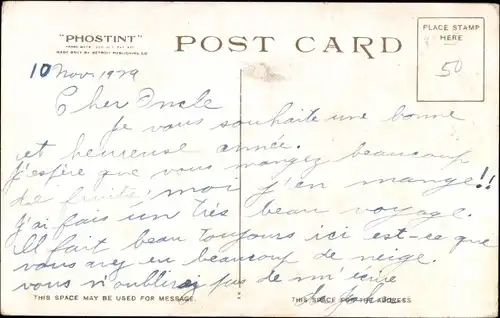 "PHOSTINT"
MADE ONLY BY DETROIT PUBLISHING CO.
POST CARD
PLACE STAMP
HERE
50
10 Nov. 1929
Cher Oncle
Je vous souhaite une bonne
et heureuse année.
J'espère que vous mangez beaucoup
de fruits, moi j'en mange!!
J'ai fais un très beau voyage.
Il fait beau toujours ici est-ce que
vous avez eu beaucoup de neige.
vous n'oublirez pas de m'écire
THIS SPACE MAY BE USED FOR MESSAGE.
THIS SPACE FOR THE ADDRESS